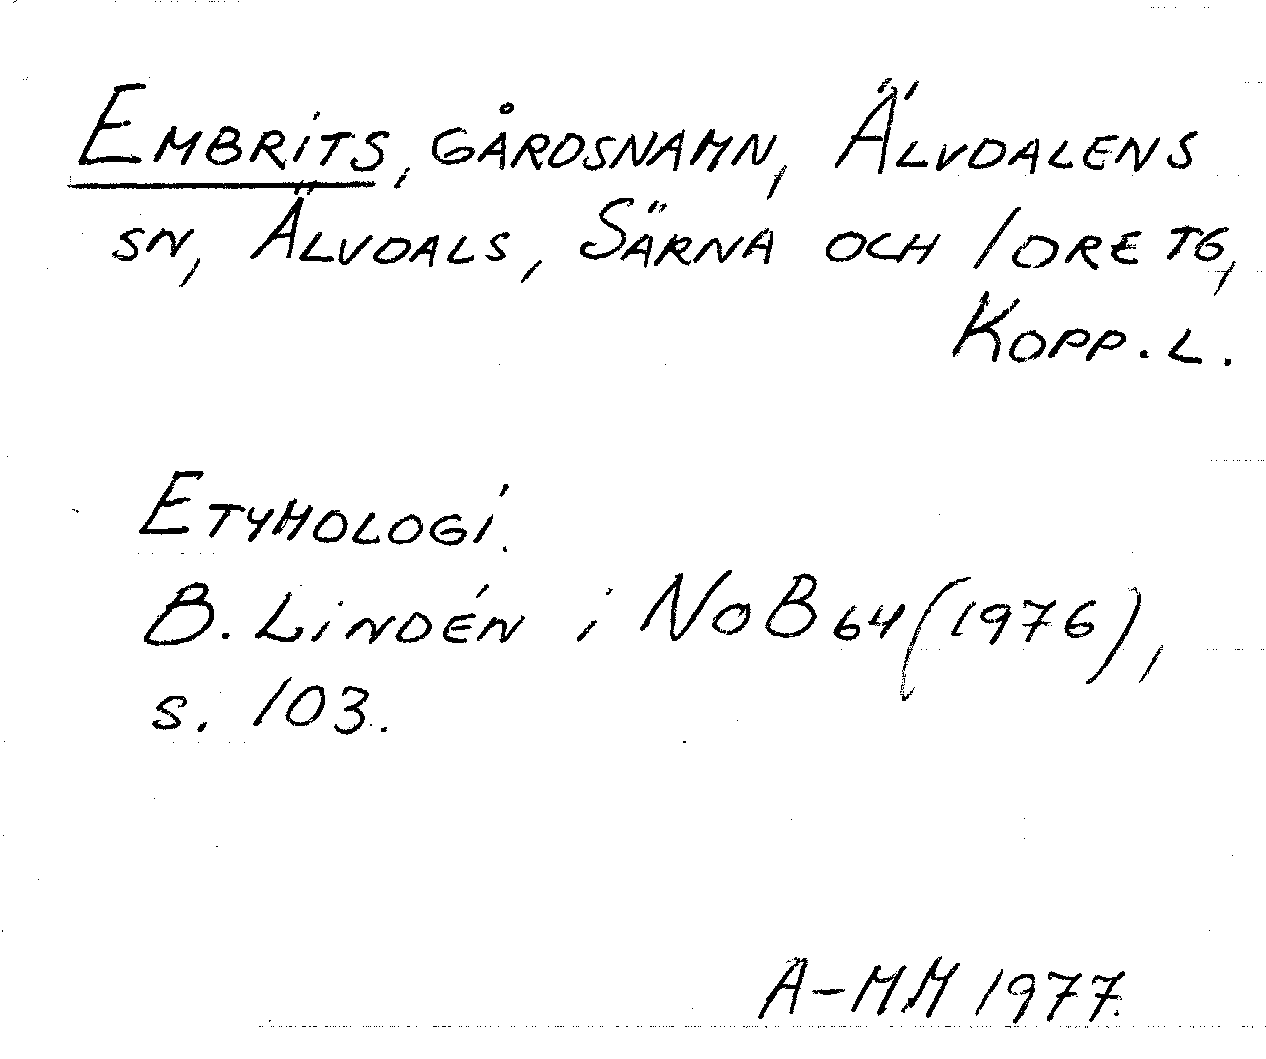 EMBRITS, GÅRDSNAMN, ÄLVDALENS
SN, ÄLVDALS, SÄRNA OCH IDRE TG,
KOPP. L.
ETYMOLOGI.
B. LINDÉN i NOB 64 (1976),
S. 103.
A-MM 1977.